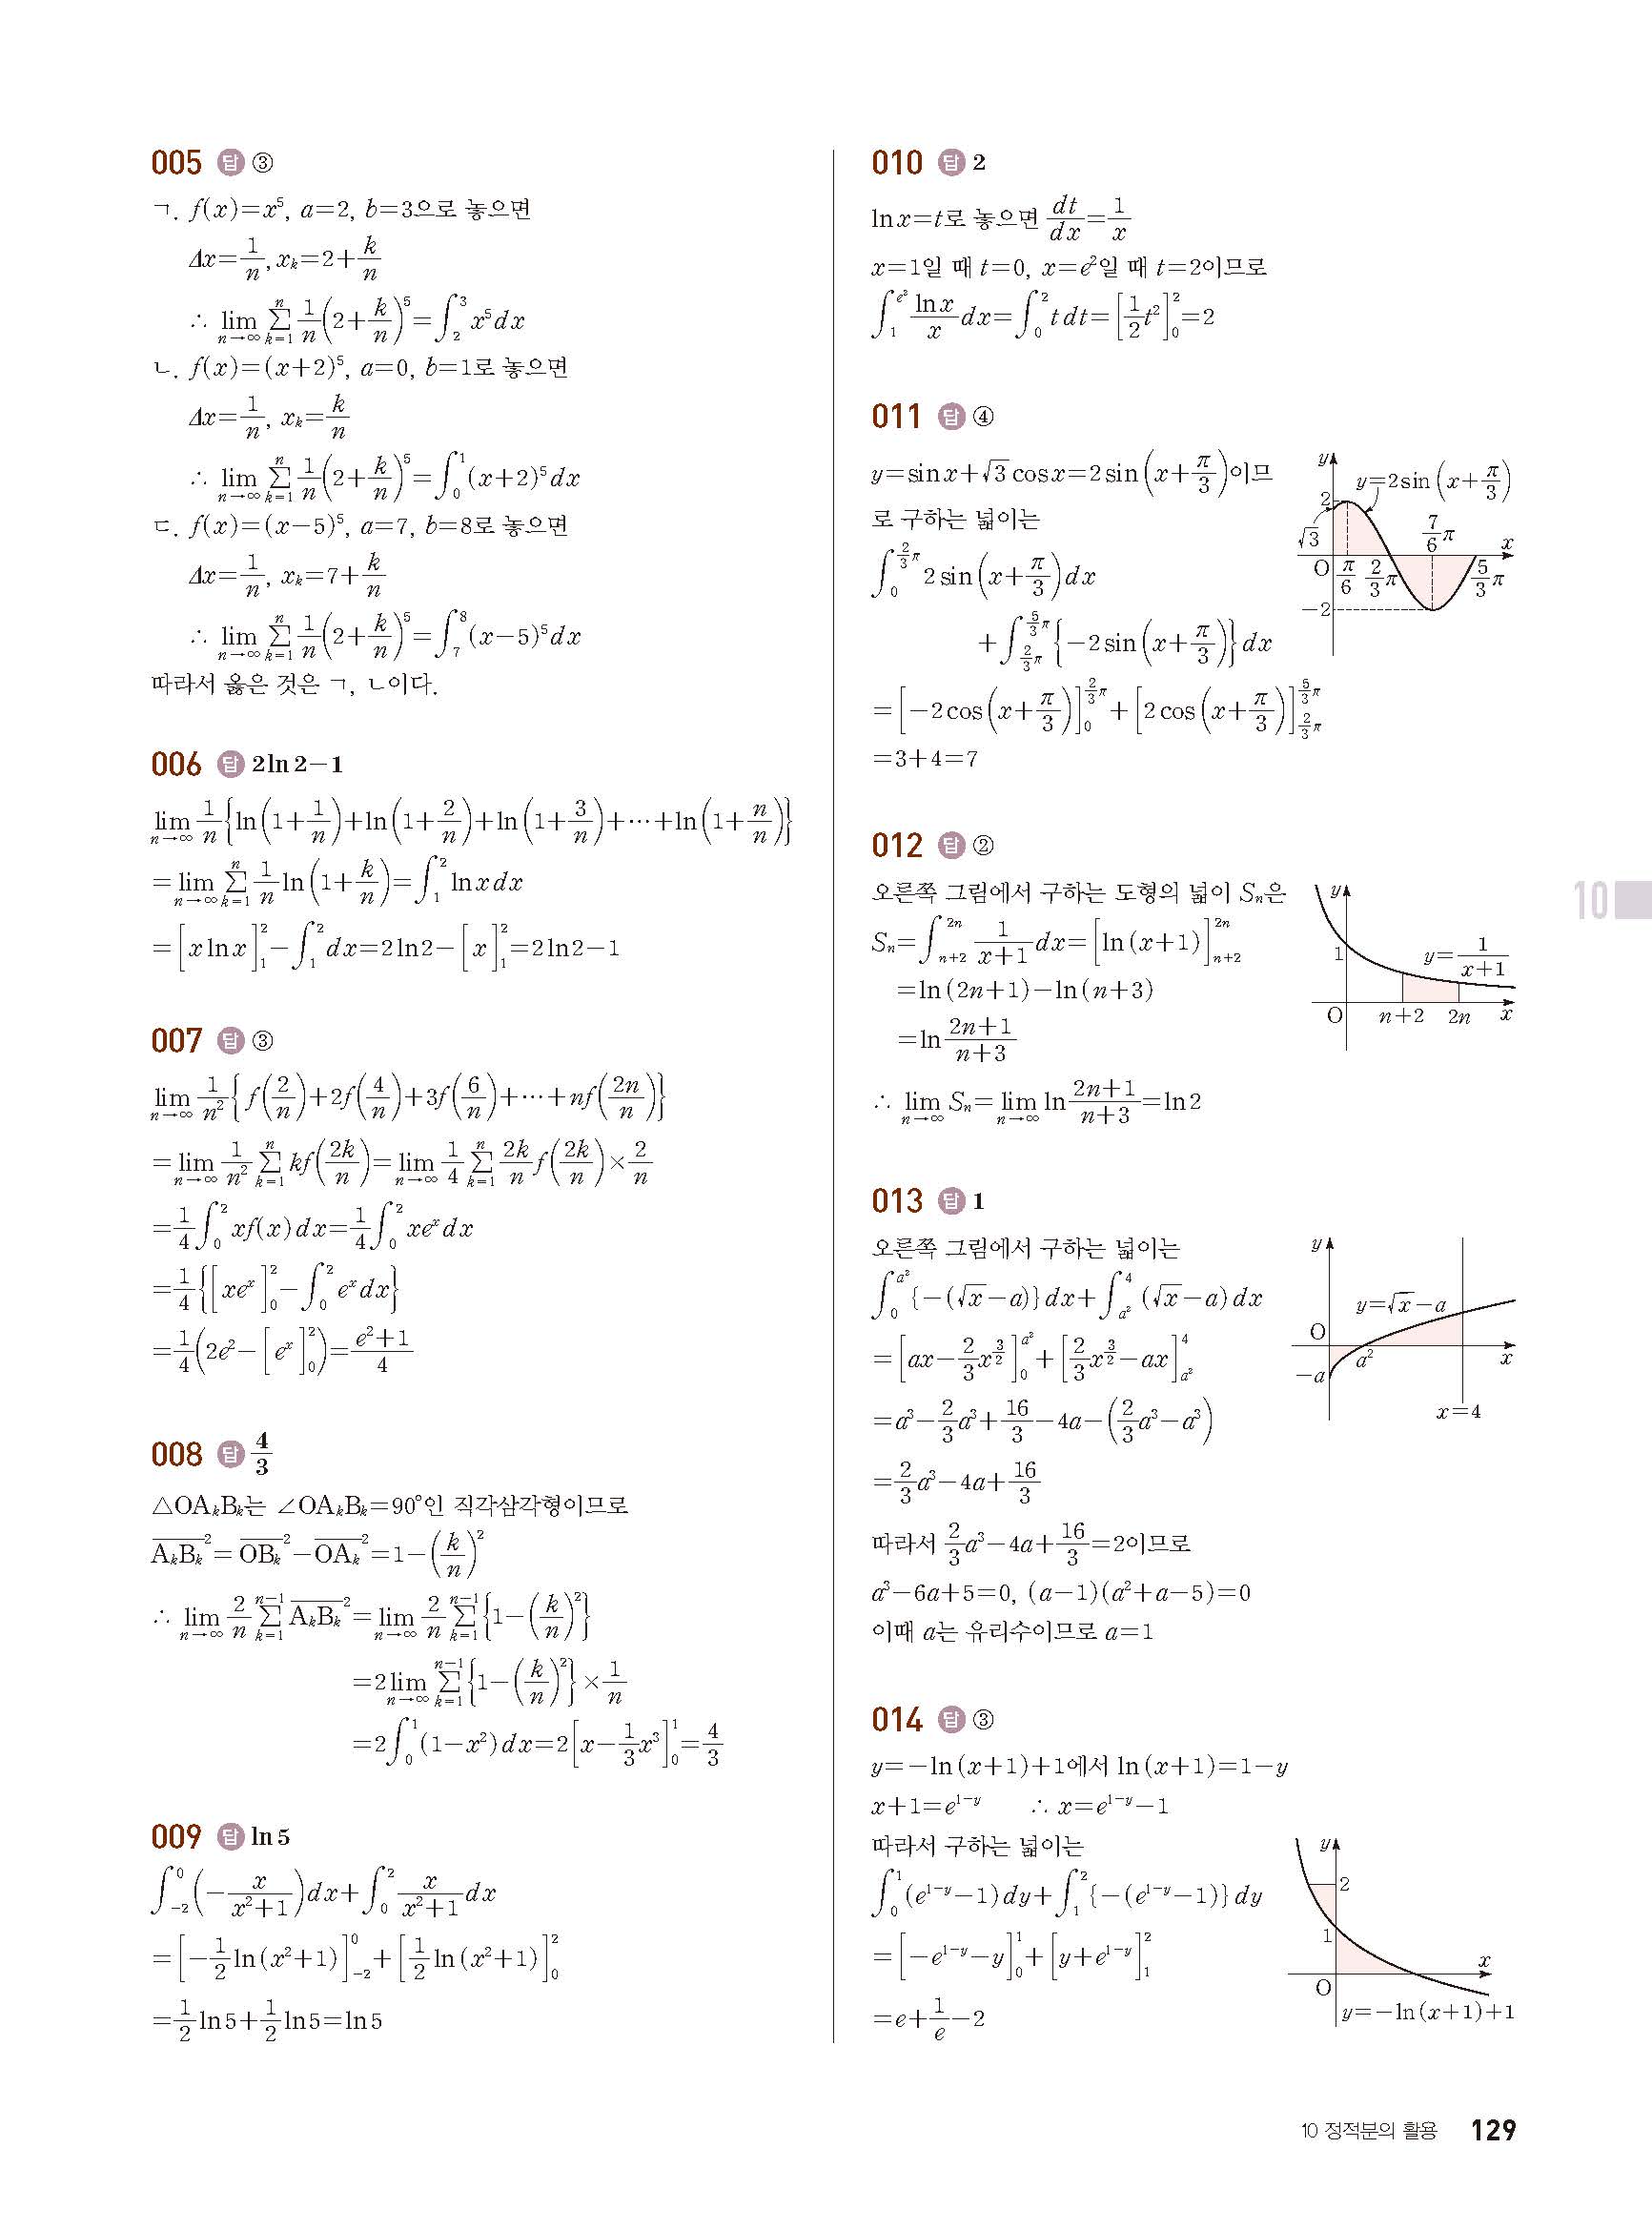 005 답 ③
ㄱ. f(x)=x⁵, a=2, b=3으로 놓으면
Δx=1/n, xₖ=2+k/n
∴ lim_{n→∞} Σ_{k=1}^{n} 1/n(2+k/n)⁵=∫_2^3 x⁵dx
ㄴ. f(x)=(x+2)⁵, a=0, b=1로 놓으면
Δx=1/n, xₖ=k/n
∴ lim_{n→∞} Σ_{k=1}^{n} 1/n(2+k/n)⁵=∫_0^1 (x+2)⁵dx
ㄷ. f(x)=(x-5)⁵, a=7, b=8로 놓으면
Δx=1/n, xₖ=7+k/n
∴ lim_{n→∞} Σ_{k=1}^{n} 1/n(2+k/n)⁵=∫_7^8 (x-5)⁵dx
따라서 옳은 것은 ㄱ, ㄴ이다.
006 답 2ln2-1
lim_{n→∞} 1/n{ln(1+1/n)+ln(1+2/n)+ln(1+3/n)+⋯+ln(1+n/n)}
=lim_{n→∞} Σ_{k=1}^{n} 1/n ln(1+k/n)=∫_1^2 lnxdx
=[xlnx]_1^2-∫_1^2 dx=2ln2-[x]_1^2=2ln2-1
007 답 ③
lim_{n→∞} 1/n²{f(2/n)+2f(4/n)+3f(6/n)+⋯+nf(2n/n)}
=lim_{n→∞} 1/n² Σ_{k=1}^{n} kf(2k/n)=lim_{n→∞} 1/4 Σ_{k=1}^{n} 2k/n f(2k/n)×2/n
=1/4∫_0^2 xf(x)dx=1/4∫_0^2 xeˣdx
=1/4{[xeˣ]_0^2-∫_0^2 eˣdx}
=1/4(2e²-[eˣ]_0^2)=(e²+1)/4
008 답 4/3
△OAₖBₖ는 ∠OAₖBₖ=90°인 직각삼각형이므로
A̅ₖB̅ₖ²=O̅B̅ₖ²-O̅A̅ₖ²=1-(k/n)²
∴ lim_{n→∞} 2/n Σ_{k=1}^{n-1} A̅ₖB̅ₖ²=lim_{n→∞} 2/n Σ_{k=1}^{n-1}{1-(k/n)²}
=2lim_{n→∞} Σ_{k=1}^{n-1}{1-(k/n)²}×1/n
=2∫_0^1 (1-x²)dx=2[x-1/3x³]_0^1=4/3
009 답 ln5
∫_{-2}^0 (-x/(x²+1))dx+∫_0^2 x/(x²+1)dx
=[-1/2ln(x²+1)]_{-2}^0+[1/2ln(x²+1)]_0^2
=1/2ln5+1/2ln5=ln5
010 답 2
lnx=t로 놓으면 dt/dx=1/x
x=1일 때 t=0, x=e²일 때 t=2이므로
∫_1^{e²} lnx/x dx=∫_0^2 tdt=[1/2t²]_0^2=2
011 답 ④
y=sinx+√3cosx=2sin(x+π/3)이므
로 구하는 넓이는
∫_0^{2/3π} 2sin(x+π/3)dx
+∫_{2/3π}^{5/3π}{-2sin(x+π/3)}dx
=[-2cos(x+π/3)]_0^{2/3π}+[2cos(x+π/3)]_{2/3π}^{5/3π}
=3+4=7
y
y=2sin(x+π/3)
2
√3
7/6π
x
O π/6 2/3π 5/3π
-2
012 답 ②
오른쪽 그림에서 구하는 도형의 넓이 Sₙ은
Sₙ=∫_{n+2}^{2n} 1/(x+1)dx=[ln(x+1)]_{n+2}^{2n}
=ln(2n+1)-ln(n+3)
=ln (2n+1)/(n+3)
∴ lim_{n→∞} Sₙ=lim_{n→∞} ln (2n+1)/(n+3)=ln2
y
1
y=1/(x+1)
O n+2 2n x
013 답 1
오른쪽 그림에서 구하는 넓이는
∫_0^{a²}{-(√x-a)}dx+∫_{a²}^4(√x-a)dx
=[ax-2/3x^{3/2}]_0^{a²}+[2/3x^{3/2}-ax]_{a²}^4
=a³-2/3a³+16/3-4a-(2/3a³-a³)
=2/3a³-4a+16/3
따라서 2/3a³-4a+16/3=2이므로
a³-6a+5=0, (a-1)(a²+a-5)=0
이때 a는 유리수이므로 a=1
y
y=√x-a
O
a² x
-a
x=4
014 답 ③
y=-ln(x+1)+1에서 ln(x+1)=1-y
x+1=e^{1-y} ∴ x=e^{1-y}-1
따라서 구하는 넓이는
∫_0^1(e^{1-y}-1)dy+∫_1^2{-(e^{1-y}-1)}dy
=[-e^{1-y}-y]_0^1+[y+e^{1-y}]_1^2
=e+1/e-2
y
2
1
x
O
y=-ln(x+1)+1
10
10 정적분의 활용 129